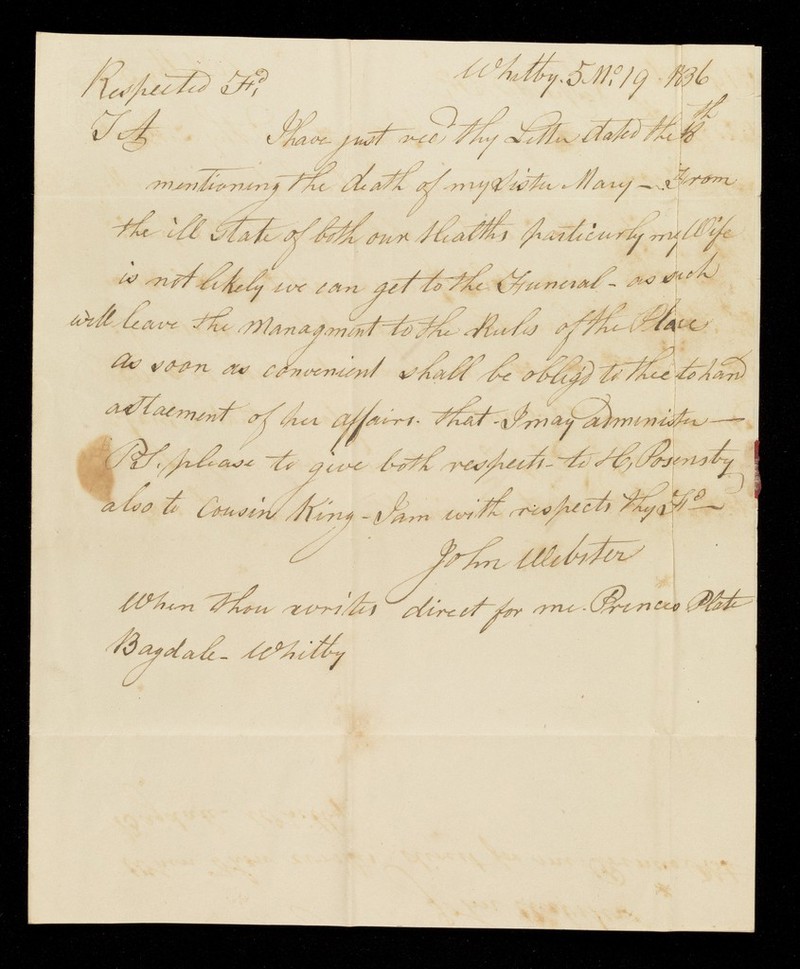 Whitby. 5 Mo. 19 1836
Respected Fd,
T A I have just recd thy Letter stated the 18th
mentioning the death of my Sister Mary - From
the ill State of both our Healths particurly my Wife
is not likely we can get to the Funeral - as such
will leave the Managment to the Rules of the Place
as soon as convenient shall be oblig'd to thee to hand
a Staement of her affairs. that I may administer -
PS. please to give both respects - to H, Ponsby
also to Cousin King - I am with respects thy Fd -
John Webster
When Thou writes direct for me. Princes Plate
Bagdale - Whitby